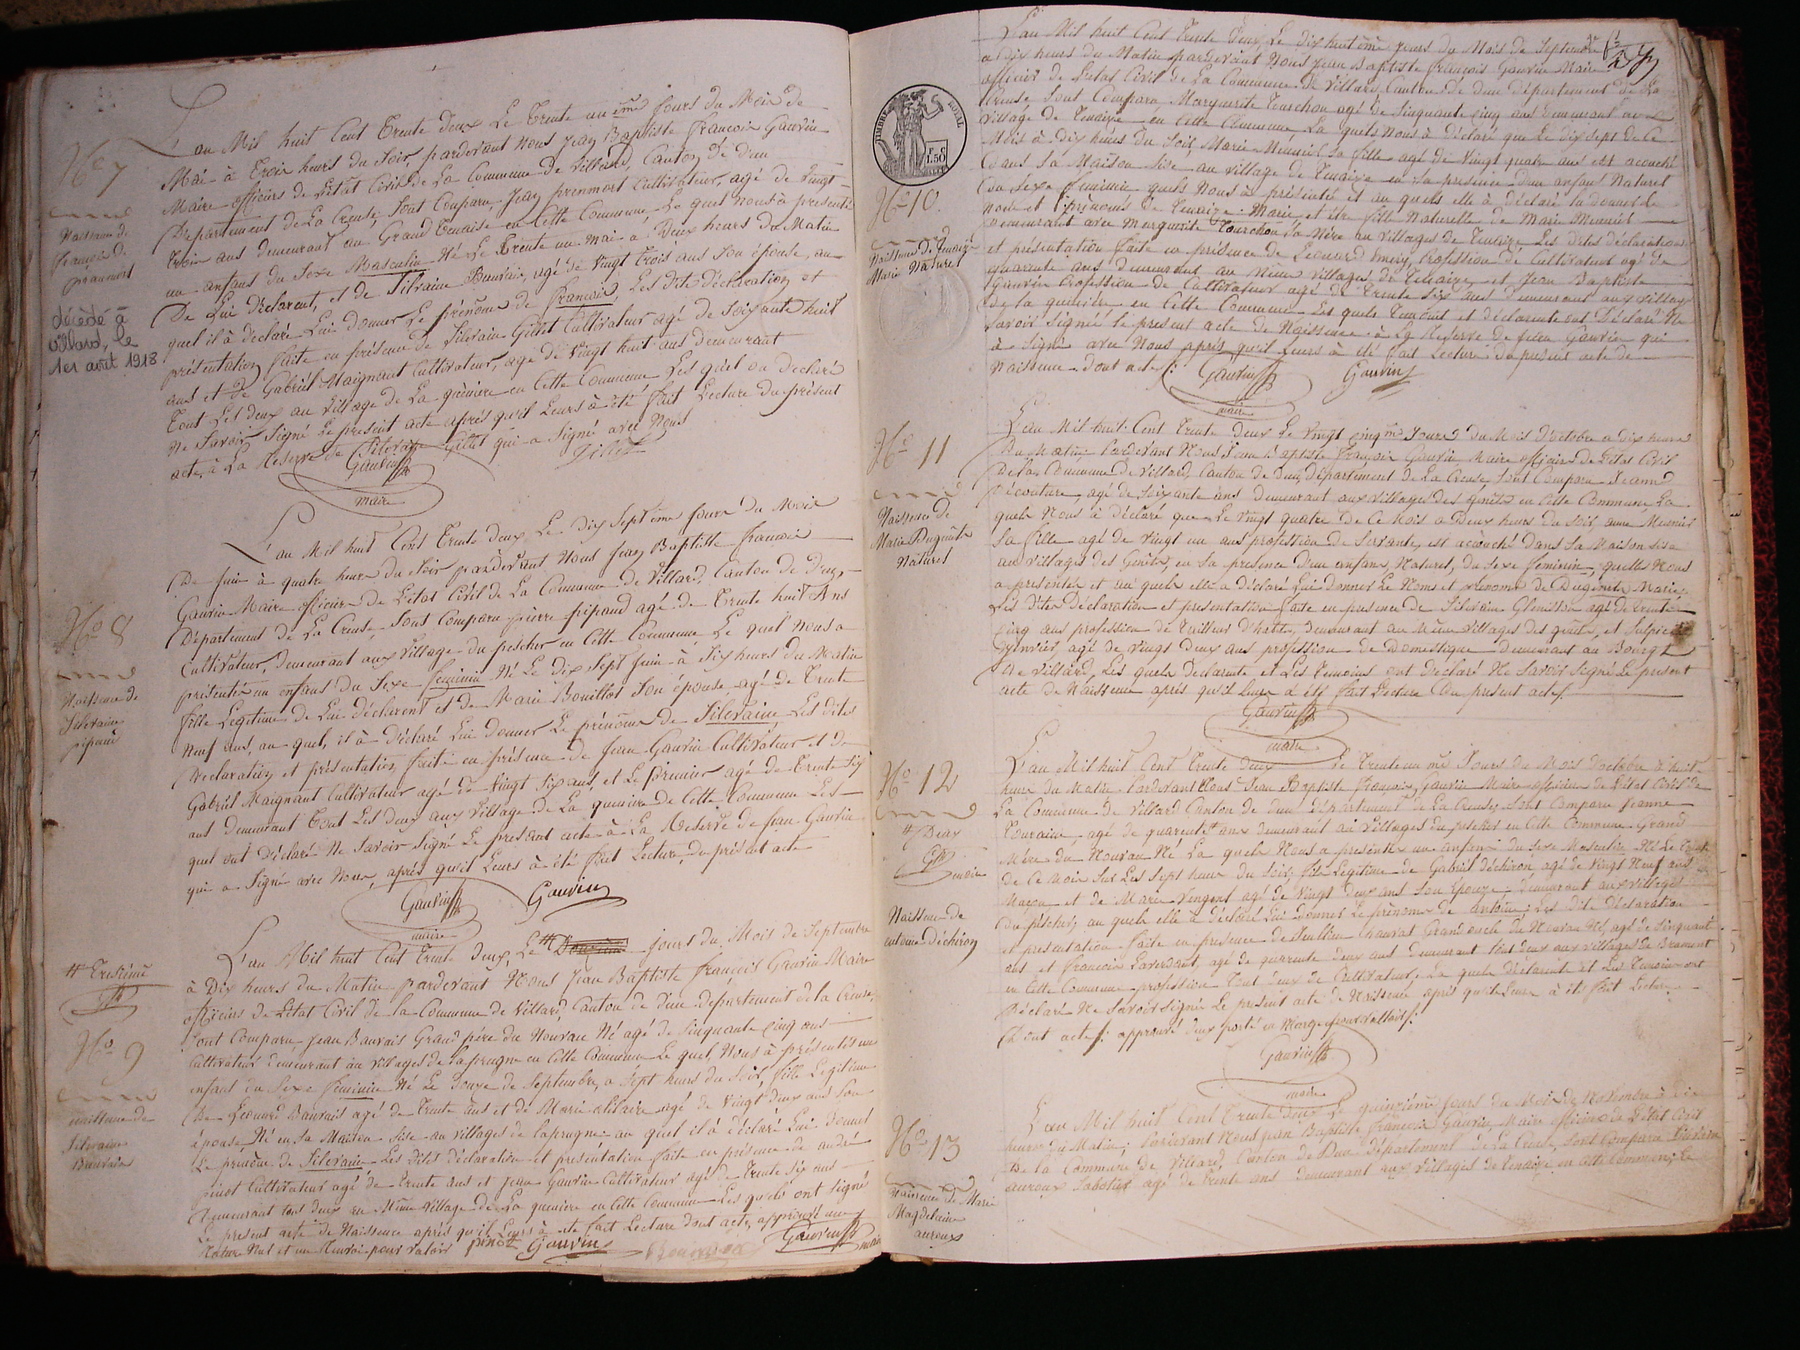 L'an Mil huit Cent Trente Deux Le Trente un ème Jours du Mois de
Mai à Trois heurs du Soir, pardevant nous Jean Baptiste francois Gauvin
Maire officiers de L'état Civil de La Commune de Villard, Canton de Dun
Département de La Creuse, Sont Comparu Jean premmort Cultivateur, agé de Vingt
Trois ans demeurant au Grand en Cette Commune, Le quel nous à presenté
un enfans du Sexe Masculin Né Le Trente un Mai à Deux heurs du Matin
De Lui Déclarent, et de Silvaine Bauvais, agé de Vingt Trois ans Son épouse, au
quel il à déclaré Lui donner Le prénoms de francois, Les Dite déclaration et
présentation faite en présence de Silvain Gillet Cultivateur agé de Soixante huit
ans et de Gabriel Maignant Cultivateur, agé de Vingt huit ans demeurant
Tout Les deux au Village de La en Cette Commune Les quel on déclaré
Ne Savoir Signé Le present acte après qu'il Leurs à été fait Lecture du présent
acte, à La Reserve de Silvain Gillet qui a Signé avec Nous
Gauvin Gillet
maire
N° 7
Naissance de
françois de
prémort
décédé à
Villard, le
1er août 1918
L'an Mil huit Cent Trente deux Le dix Sept ème Jours du Mois
De Juin à quatre heurs du Soir pardevant Nous Jean Baptiste francois
Gauvin Maire officier de L'état Civil de La Commune de Villard, Canton de Dun
Département de La Creuse, Sont Comparu pierre pipaud agé de Trente huit Ans
Cultivateur, demeurant aux Village du pescher en Cette Commune Le quel nous a
présenté un enfans du Sexe feminin Né Le dix Sept Juin à Six heurs du Matin
fille Legitime de Lui déclarent et de Marie Bouillot Son épouse, agé de Trente
Neuf ans, au quel, il à Déclaré Lui donner Le prénoms de Silvaine, Les dites
Declaration et présentation faite en présence de Jean Gauvin Cultivateur et de
Gabriel Maignant Cultivateur agé de Vingt Six ans, et Le premier agé de Trente Six
ans demeurant tout Les deux aux Village de La de Cette Commune Les
quel ont déclaré Ne Savoir Signé Le présent acte à La Reserve de Jean Gauvin
qui a Signé avec Nous, après qu'il Leurs à été fait Lecture, du présent acte
Gauvin Gauvin
maire
N° 8
Naissance de
Silvaine
pipaud
L'an Mil huit Cent Trente deux, Le # jours du Mois de Septembre
à Dix heurs du Matin pardevant Nous Jean Baptiste françois Gauvin Maire
officiers de L'état Civil de la Commune de Villard, Canton de Dun département de la Creuse,
Sont Comparu Jean Bauvais Grand père du Nouvau Né agé de Sinquante Cinq ans
Cultivateur demeurant au Villages de Laprugne en Cette Commune Le quel, Nous à présentés un
enfant du Sexe feminin Né Le Douze de Septembre, a Sept heurs du Soir, fille Legitime
De Leonard Bauvais agé de Trente ans et de Marie agé de Vingt Deux ans Son
épouse Né en Sa Maison Sise au Villages de Laprugne au quel il à déclaré Lui Donné
Le prénoms de Silvaine Les dites déclaration et présentation faite en présence de andré
pinot Cultivateur agé de Trente ans et Jean Gauvin Cultivateur agé de Trente Six ans
Demeurant tous deux au Même Village de La en Cette Commune Les quels ont Signé
Le present acte de Naissance après qu'il Leurs à été fait Lecture dont acte, approuvé un
Nul et un Renvoi pour valoir pinot Gauvin Gauvin maire
# Tresième
N° 9
naissance de
Silvaine
Bauvais
TIMBRE ROYAL
1.50
L'an Mil huit Cent Trente Deux, Le Dix huit ème Jours du Mois de Septembre
a Dix heurs du Matin pardevant Nous Jean Baptiste francois Gauvin Maire
officier de L'état Civil de La Commune de Villard, Canton de Dun département de La
Creuse Sont Comparu Marguerite Tourchon agé de Sinquante Cinq ans Demeurant au
Village de en Cette Commune La quels Nous à déclaré que Le dix Sept de Ce
Mois à Dix heurs du Soir Marie Meunier Sa fille agé de Vingt quatre ans est acouché
Dans Sa Maison Sise au Village de en Sa présence D'un anfans Naturel
Du Sexe feminin quels Nous à présenté et au quels elle à déclaré lui donner le
nom et prénoms de Marie et être fille Naturelle de Marie Meunier
Demeurant avec Marguerite Tourchon Sa Mère au Villages de Les dites déclarations
et présentation faite en présence de Leonard profession de Cultivateur agé de
quarante ans demeurant au Même Villages de et Jean Baptiste
Gauvin profession de Cultivateur agé de Trente Six ans Demeurant aux Villages
de la en Cette Commune Les quels Temoins et déclarente ont Déclaré Ne
Savoir Signé Le present acte de Naissance à La Reserve de Gauvin qui
à Signé avec Nous après qu'il Leurs à été fait Lecture du present acte de
Naissance Dont acte Gauvin Gauvin
maire
N° 10.
Naissance de
Marie Naturel
L'an Mil huit Cent Trente deux Le Vingt Cinq ème Jours du Mois D'octobre a dix heure
Du Matin Pardevant Nous Jean Baptiste François Gauvin Maire officier de L'état Civil
De La Commune de Villard, Canton de Dun, Département de La Creuse, Sont Comparu Jeanne
Decouture, agé de Soixante ans demeurant aux Villages des Genêts en Cette Commune La
quels Nous à déclaré que Le Vingt quatre de Ce Mois a Deux heurs du Soir anne Meunier
Sa fille agé de Vingt un ans profession de Servante, est accouché Dans Sa Maison Sise
aux Villages des Genêts, en Sa presence D'un anfans, Naturel, du Sexe feminin, quelle Nous
a presenter et au quels elle a déclaré Lui Donner Le Noms et prenoms de Marie,
Les Dites Déclaration et presentation faite en presence de Silvain agé de Trente
Cinq ans profession de Tailleur D'habits, demeurant au Même Villages des genêts, et Sulpice
agé de Vingt Deux ans profession de Domestique demeurant au Bourgt
De Villard, Les quels Declarente et Les Temoins ont déclaré Ne Savoir Signé Le present
acte de Naissance après qu'il Leurs à été fait Lecture Du present acte.
Gauvin
maire
N° 11
Naissance de
Marie
Naturel
L'an Mil huit Cent Trente deux Le Trente un ème Jours de Mois D'octobre à huit
heure du Matin Pardevant Nous Jean Baptiste François Gauvin Maire officier de L'état Civil de
La Commune de Villard Canton de Dun département de La Creuse, Sont Comparu Jeanne
Touraine, agé de quarente ans demeurant au Villages du pescher en Cette Commune Grand
Mère du Nouvau Né La quels Nous a présentés un enfans du Sexe Masculin Né Le Trente
de Ce Mois Sur Les Sept heurs du Soir, fils Legitime de Gabriel déchiron, agé de Vingt Neuf ans
Maçon et de Marie agé de Vingt Deux ans Son épouse demeurant aux Villages
Du pescher, au quels elle à déclaré Lui donner Le prénoms de antoine, Les dite Déclaration
et presentation faite en presence de Chauvat Grand oncle du Nouvau Né, agé de Sinquante
ans et François Laverdant, agé de quarente deux ans demeurant tout deux aux Villages de
en Cette Commune profession Tout Deux de Cultivateur, La quels déclarente et Les Temoins ont
Déclaré Ne Savoir Signé Le present acte de Naissance après qu'il Leurs à été fait Lecture
Dont acte approuvé deux porté en Marge pour valloir.
Gauvin
maire
N° 12
# Deux
maire
Naissance de
antoine Déchiron
L'an Mil huit Cent Trente deux Le quinzième Jours du Mois de Novembre à
heure du Matin, Pardevant Nous Jean Baptiste Francois Gauvin, Maire officier de L'état Civil
De la Commune de Villard, Canton de Dun Département de La Creuse, Sont Comparu Silvain
auroux Sabotier agé de Trente ans demeurant aux Villages de en Cette Commune, Le
N° 13
Naissance de Marie
Magdelaine
auroux